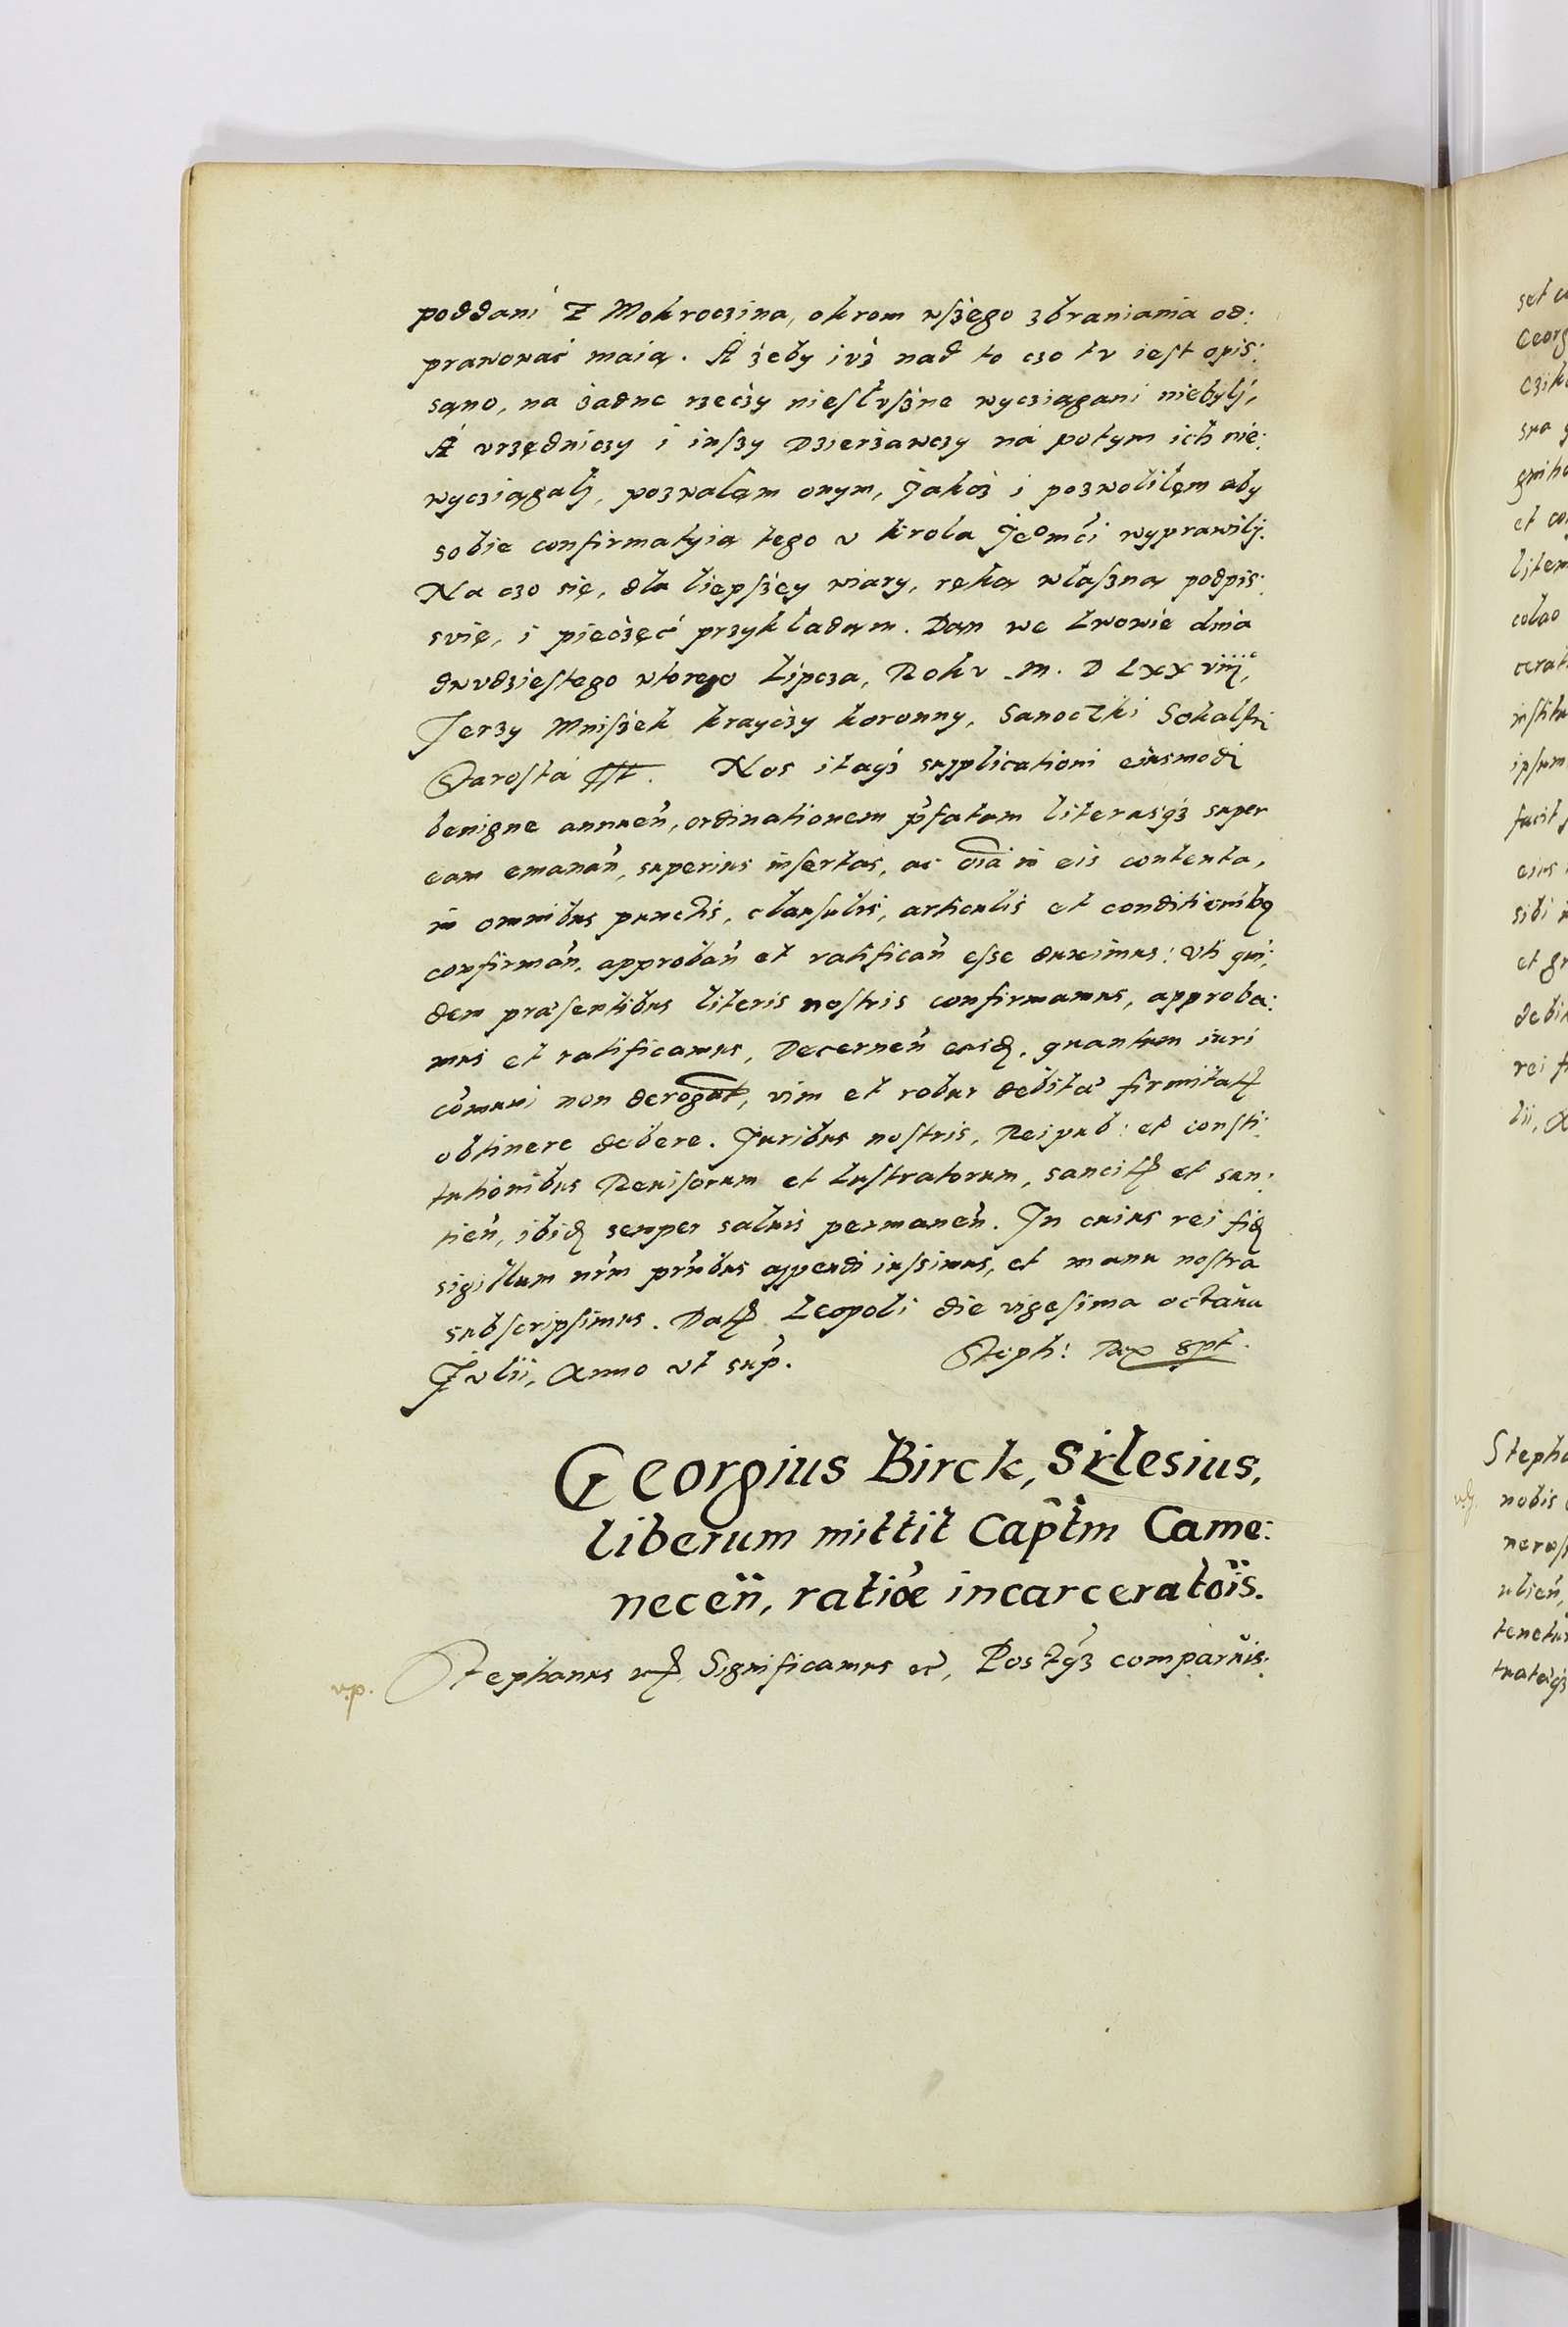 poddani Z Mokroczina, okrom wszego zbraniania od:
prawować maią. A żeby iuż nad to czo tv iest opis:
sąno, na żadne rzeczy niesłvszne wyciągani niebyli,
A vrzędniczy i inszy Dzierżawczy na potym ich nie:
wyciągali, pozwalam onym, Jakoż i pozwoliłem aby
sobie confirmatyią tego v krola Jedmći wyprawili.
Na czo się, dla liepszey wiary, ręką własną podpis:
svię, i pieczęć przykladam. Dan we Lwowie dnia
dwvdziestego wtorego Lipcza, Rokv M. D LXXviij,
Jerzy Mniszek krayczy koronny, Sanoczki Sokalski
Starosta sst. Nos itaqз supplicationi eiusmodi
benigne annueñ, ordinationem p̃fatam literasqз super
eam emanañ, superius insertas, ac oĩa in eis contenta,
in omnibus punctis, clausulis, articulis et conditionibꝫ
confirmañ, approbañ et ratificañ esse duximus: Vti qui:
dem præsentibus literis nostris confirmamus, approba:
mus et ratificamus, Decerneñ easdꝫ, quantum iuri
cõmuni non derogat, vim et robur debitæ firmitatꝭ
obtinere debere. Juribus nostris, Reipub: et consti:
tutionibus Reuisorum et Lustratorum, sancitꝭ et san:
cieñ, ibidꝫ semper saluis permaneñ. In cuius rei fidꝫ
sigillum nr̃m pñtibus appendi iussimus, et manu nostra
subscripsimus. Datꝭ Leopoli die vigesima octaua
Julii, Anno vt sup̃. Steph: Rex sspt.
Georgius Birck, Silesius,
liberum mittit Cap̃tm Came:
neceñ, ratiõe incarceratõis.
v.p.
Stephanus ꝛꝭ, Significamus ec̃, Postqз comparuis:
set
Georg
colao
et gr
Stepha
nobis